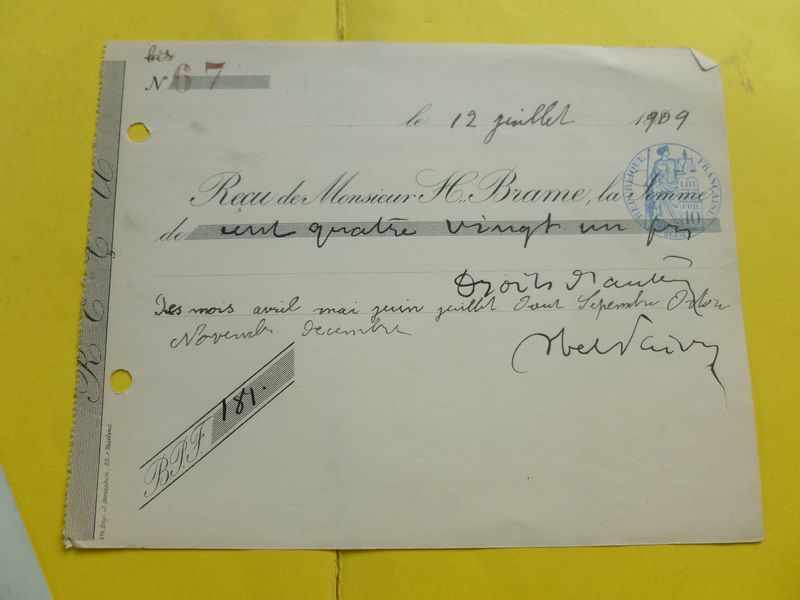 bis
N 67
le 12 juillet 1909
Reçu de Monsieur H. Brame, la Somme
de cent quatre vingt un frs
RÉPUBLIQUE FRANÇAISE
10
Droits d'auteur
Des mois avril mai juin juillet Aout Sepembre Octobre
Novembre decembre
B.P.F. 181.
REÇU